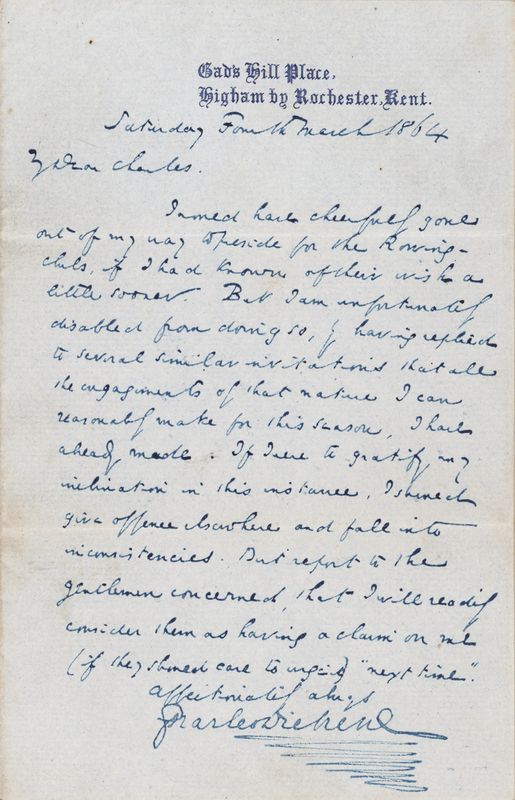 Gad's Hill Place,
Higham by Rochester, Kent.
Saturday Fourth March 1864
My Dear Charles.
I would have cheerfully gone
out of my way to preside for the Rowing-
club, if I had known of their wish a
little sooner. But I am unfortunately
disabled from doing so, by having replied
to several similar invitations that all
the engagements of that nature I can
reasonably make for this season, I have
already made. If I were to gratify my
inclination in this instance, I should
give offence elsewhere and fall into
inconsistencies. But report to the
gentlemen concerned, that I will readily
consider them as having a claim on me
(if they should care to urge it) "next time".
Affectionately always
Charles Dickens